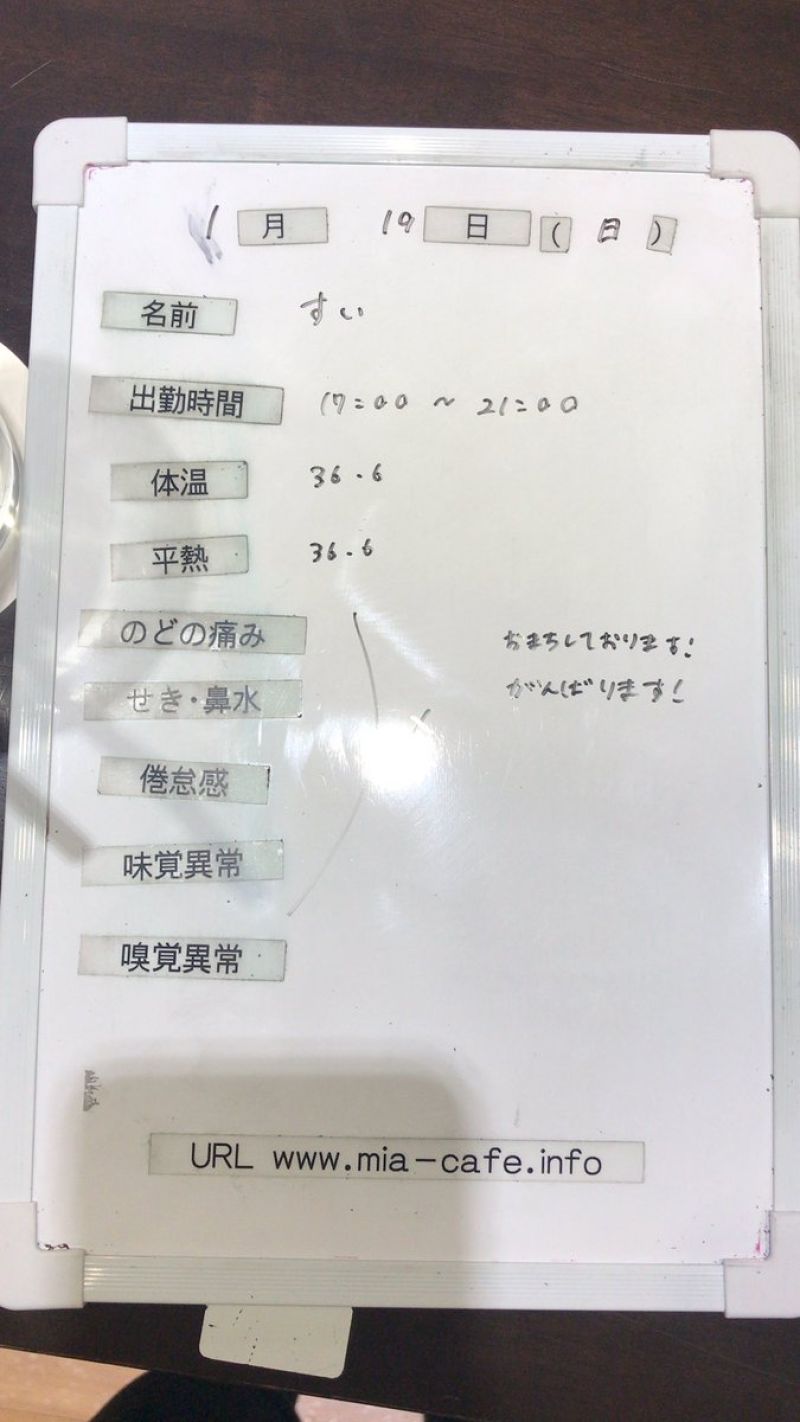 1月 19日(日)
名前 すい
出勤時間 17:00 ~ 21:00
体温 36.6
平熱 36.6
のどの痛み
せき・鼻水
倦怠感
味覚異常
嗅覚異常
おまちしております!
がんばります!
URL www.mia-cafe.info